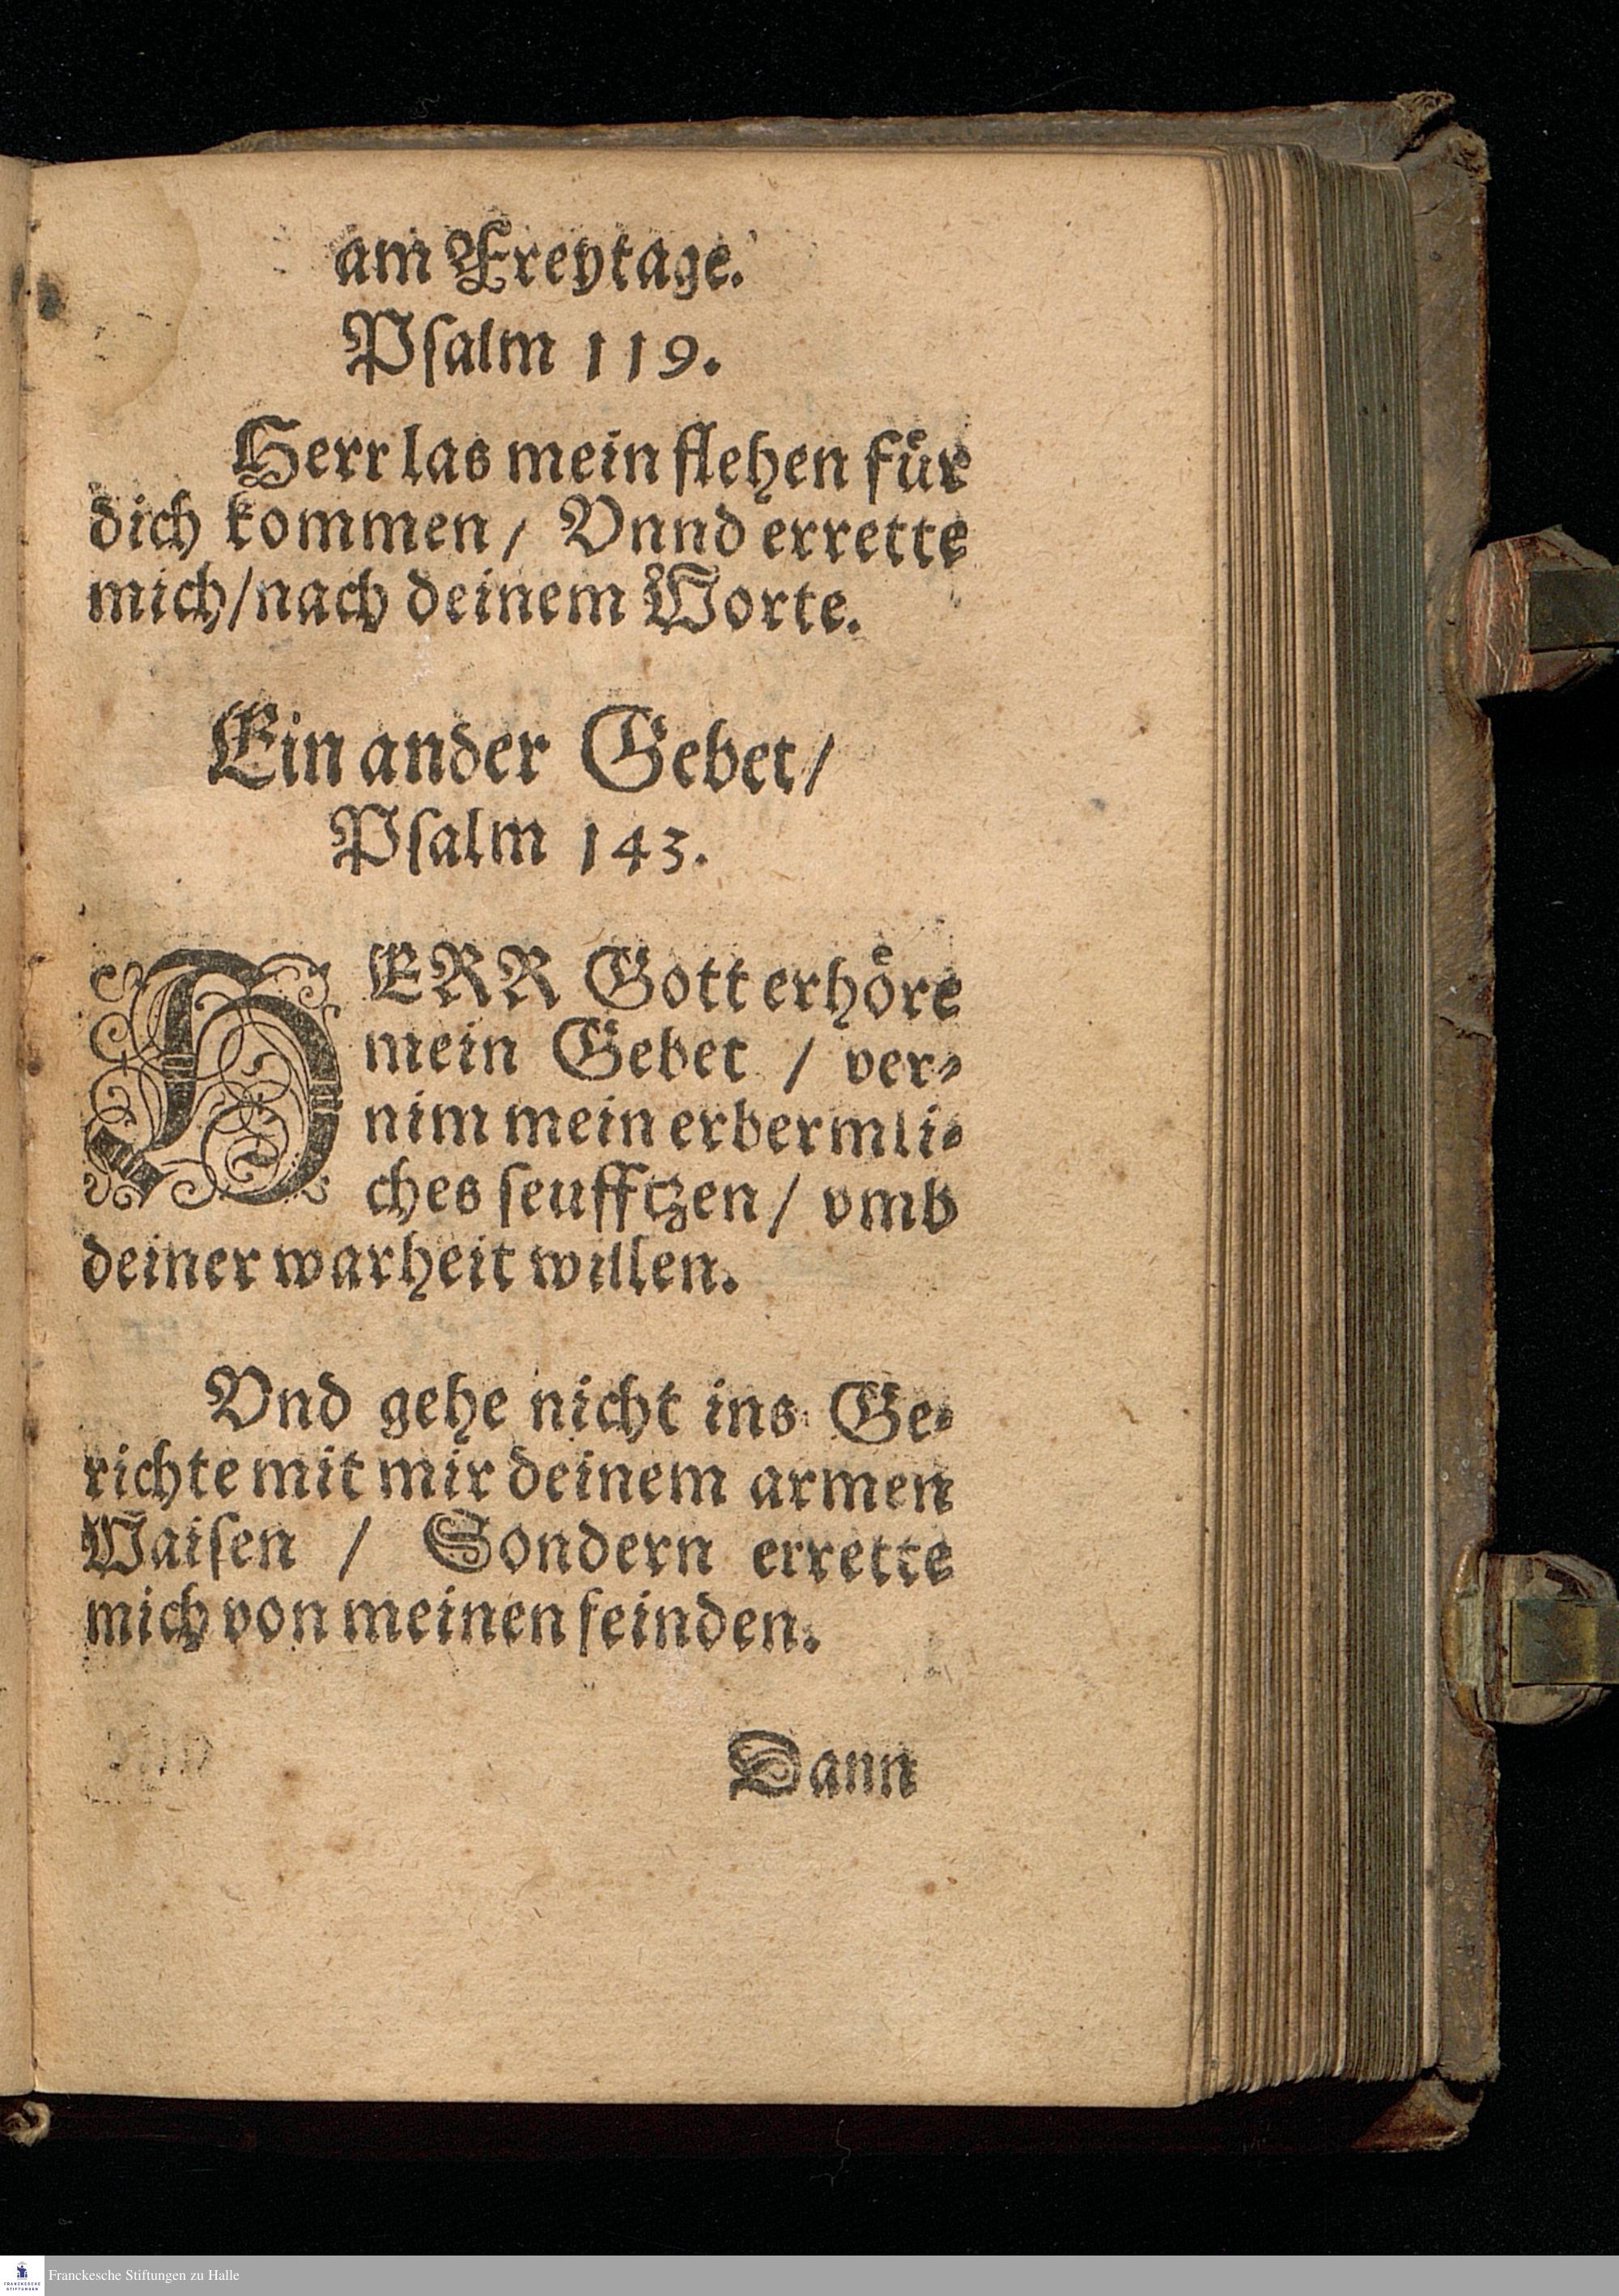 am Freytage.
Psalm 119.
Herr las mein flehen fuͤr
dich kommen / Vnnd errette
mich / nach deinem Worte.
Ein ander Gebet /
Psalm 143.
HERR Gott erhoͤre
mein Gebet / ver-
nim mein erbermli-
ches seufftzen / vmb
deiner warheit willen.
Vnd gehe nicht ins Ge-
richte mit mir deinem armen
Waisen / Sondern errette
mich von meinen feinden.
Dann
FRANCKESCHE
STIFTUNGEN
Franckesche Stiftungen zu Halle